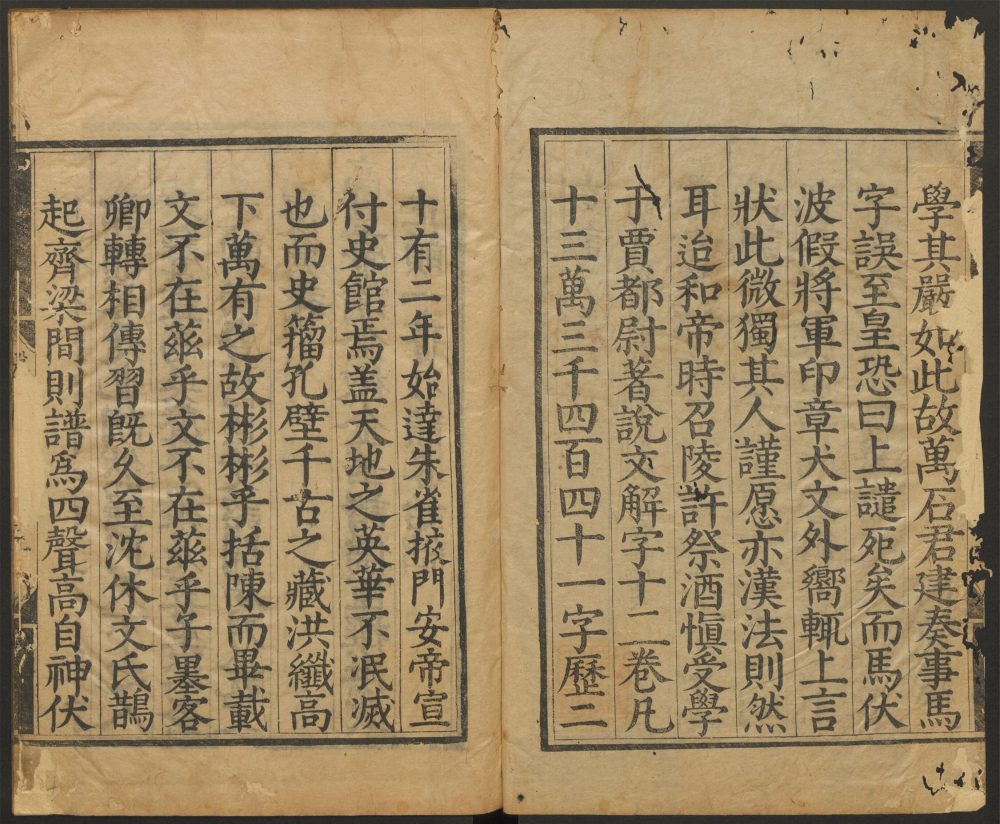 學其嚴如此故萬石君建奏事馬
字誤至皇恐曰上譴死矣而馬伏
波假將軍印章犬文外嚮輒上言
狀此微獨其人謹愿亦漢法則然
耳迨和帝時召陵許祭酒愼受學
于賈都尉著說文解字十二卷凡
十三萬三千四百四十一字歷二
十有二年始達朱雀掖門安帝宣
付史館焉盖天地之英華不泯滅
也而史籀孔壁千古之藏洪纖高
下萬有之故彬彬乎括陳而畢載
文不在茲乎文不在茲乎子墨客
卿轉相傳習旣久至沈休文氏鵲
起齊梁間則譜爲四聲高自神伏